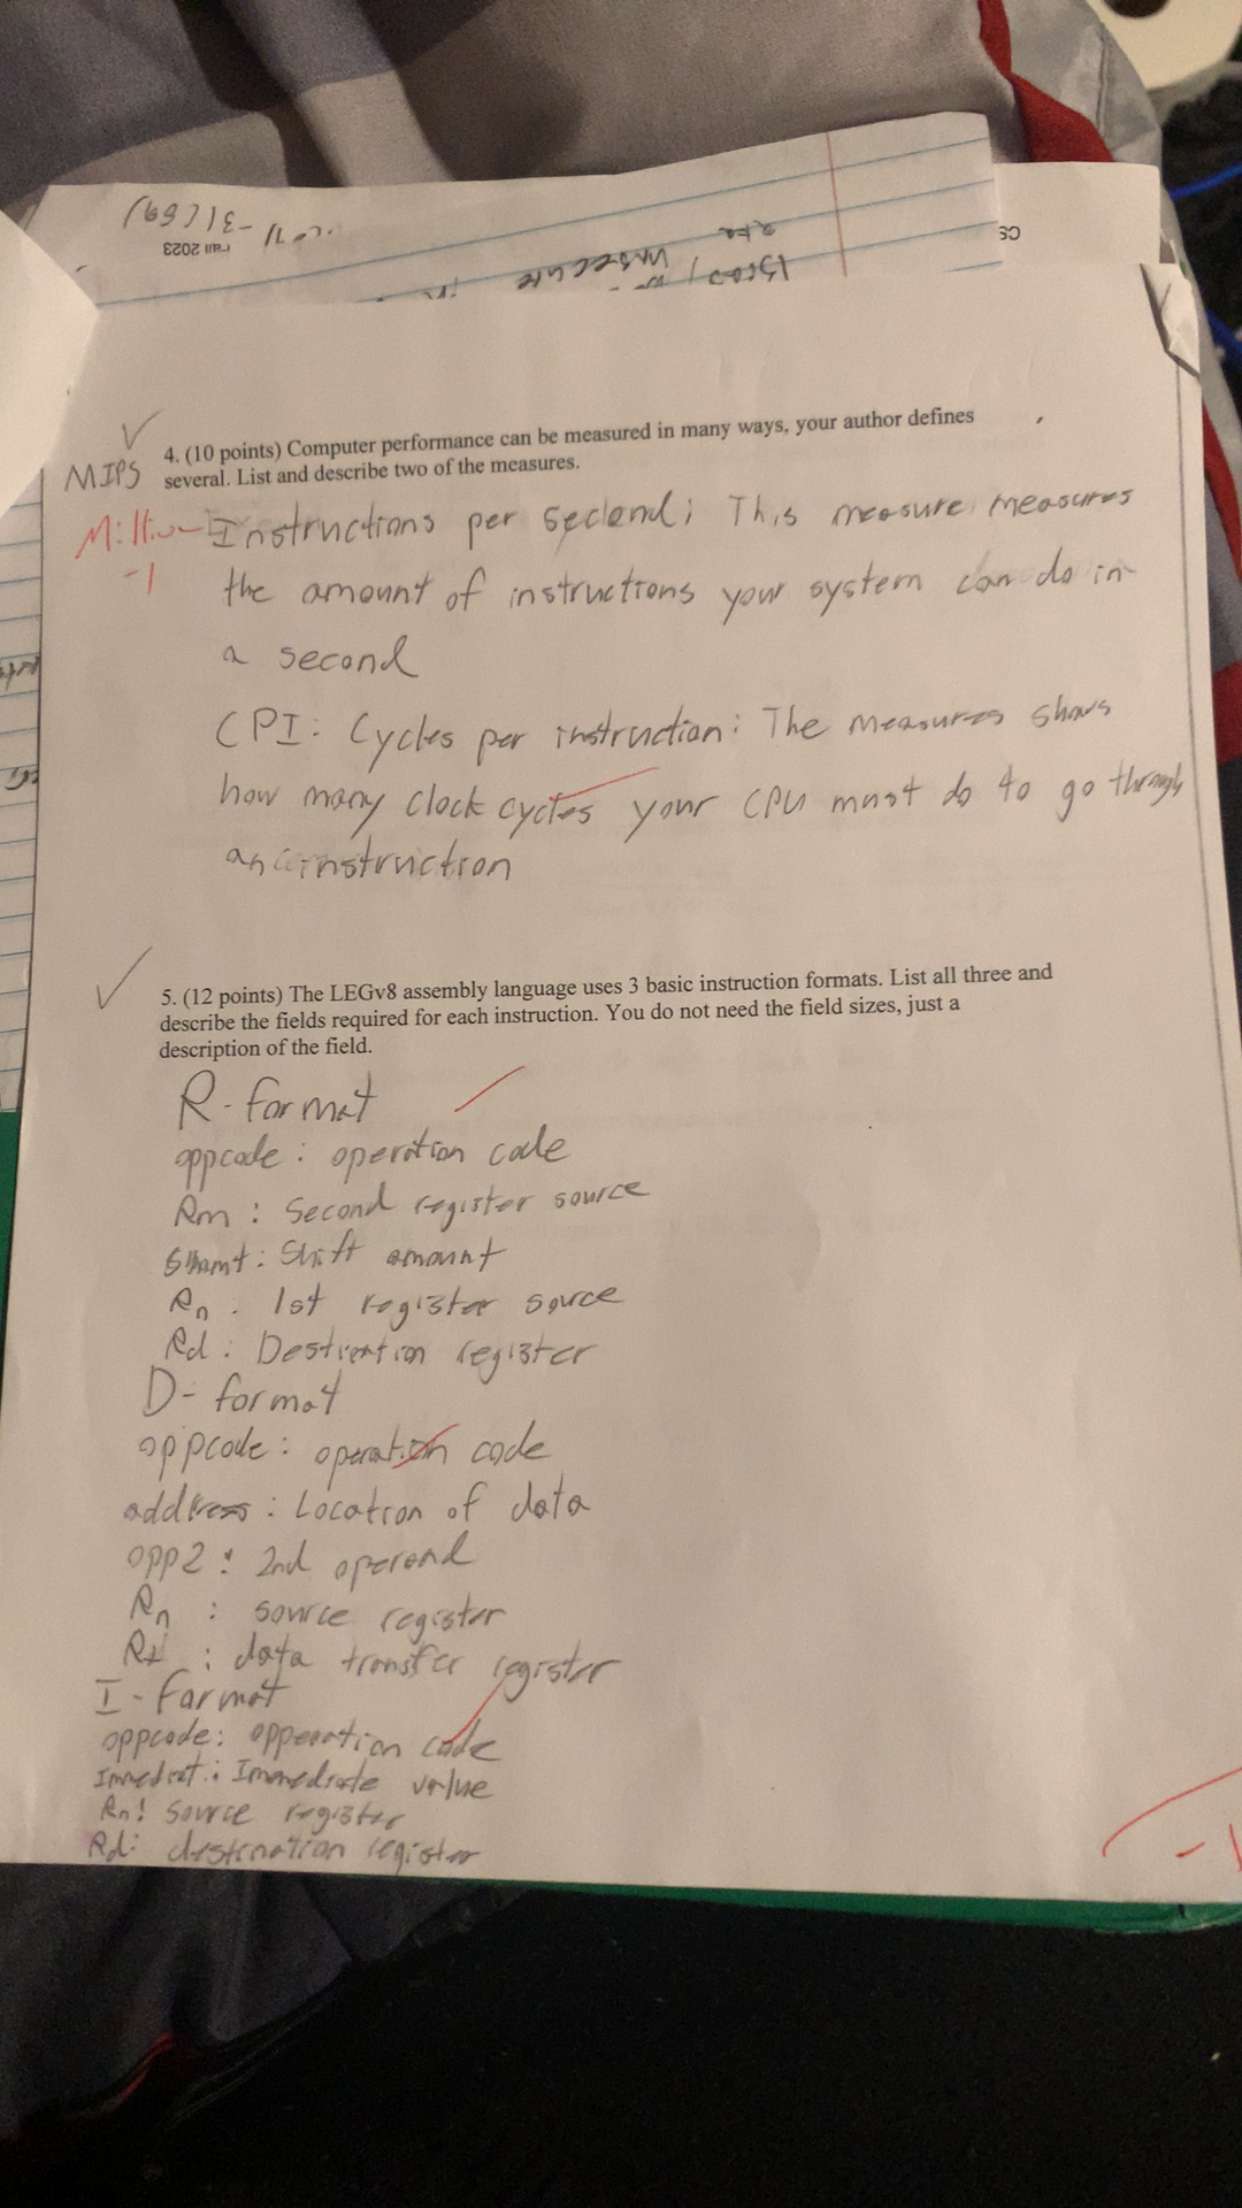 -31(69)
Fall 2023
CS
insecure
4. (10 points) Computer performance can be measured in many ways, your author defines
several. List and describe two of the measures.
MIPS
Million
-1
Instructions per seclond; This measure measures
the amount of instructions your system can do in
a second
CPI: Cycles per instruction: The measures shows
how many clock cycles your CPU must do to go through
an instruction
5. (12 points) The LEGv8 assembly language uses 3 basic instruction formats. List all three and
describe the fields required for each instruction. You do not need the field sizes, just a
description of the field.
R-format
oppcode: operation code
Rm: Second register source
Shamt: Shift amount
Rn: 1st register source
Rd: Destination register
D-format
oppcode: operation code
address: Location of data
opp2: 2nd operand
Rn: source register
Rt: data transfer register
I-format
oppcode: opperation code
Immediat: Immediate value
Rn: source register
Rd: destination register
-1